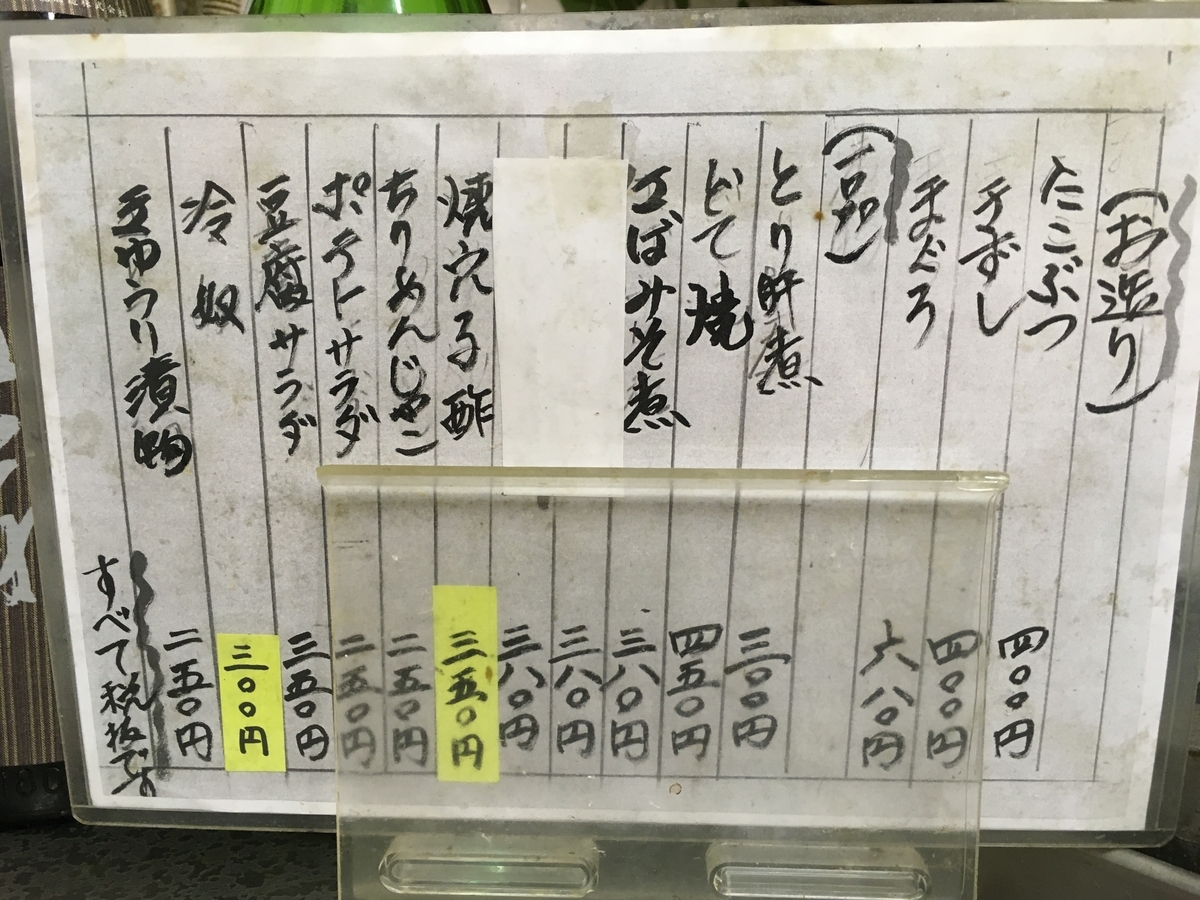 (お造り)
たこぶつ 四〇〇円
きずし 四〇〇円
まぐろ 六八〇円
(一品)
とり肝煮 三〇〇円
どて焼 四五〇円
さばみそ煮 三八〇円
三八〇円
三八〇円
焼穴子酢 三五〇円
ちりめんじゃこ 二五〇円
ポテトサラダ 二五〇円
豆腐サラダ 三五〇円
冷奴 三〇〇円
きゅうり漬物 二五〇円
すべて税抜です